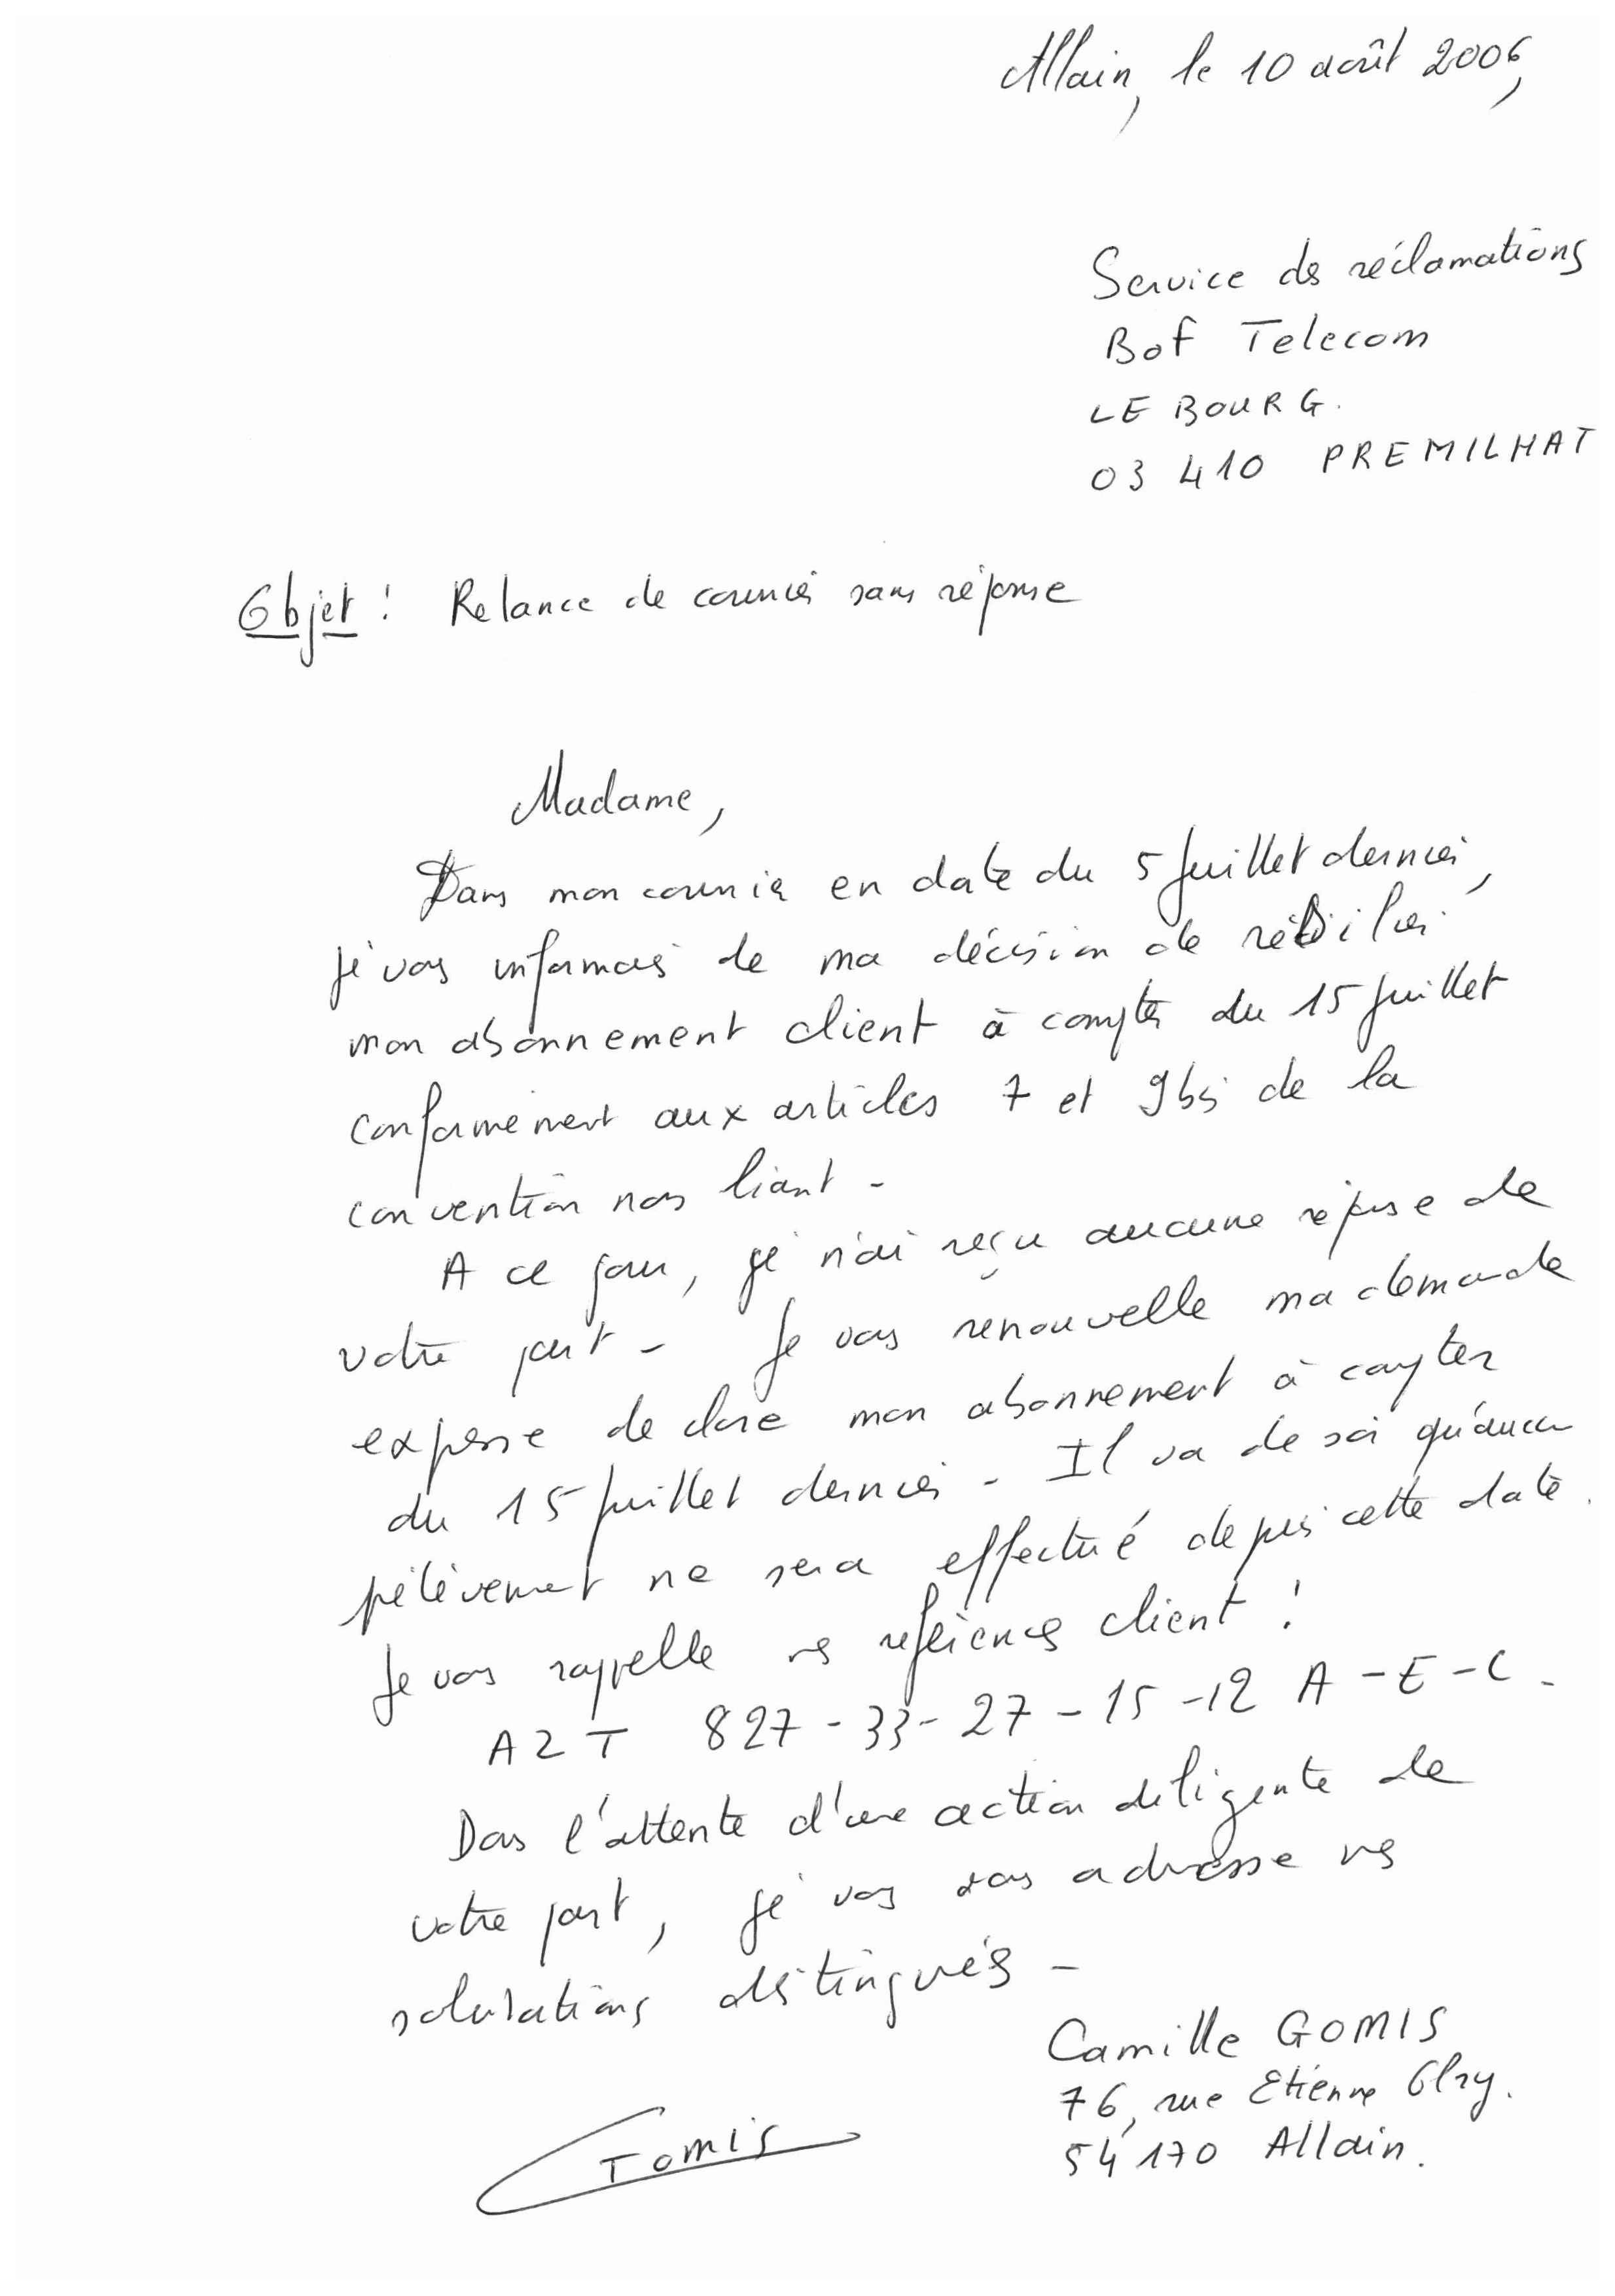 Allain, le 10 août 2006,
Service des réclamations
Bof Telecom
LE BOURG.
03 410 PREMILHAT
Objet : Relance de courrier sans réponse
Madame,
Dans mon courrier en date du 5 juillet dernier,
je vous informais de ma décision de résilier
mon abonnement client à compter du 15 juillet
conformément aux articles 7 et 9bis de la
convention nous liant -
A ce jour, je n'ai reçu aucune réponse de
votre part - Je vous renouvelle ma demande
expresse de clore mon abonnement à compter
du 15 juillet dernier - Il va de soi qu'aucun
prélèvement ne sera effectué depuis cette date.
Je vous rappelle mes références client :
A2T 827-33-27-15-12 A-E-C -
Dans l'attente d'une action diligente de
votre part, je vous adresse mes
salutations distinguées -
Camille GOMIS
76, rue Etienne
54 170 Allain.
Gomis